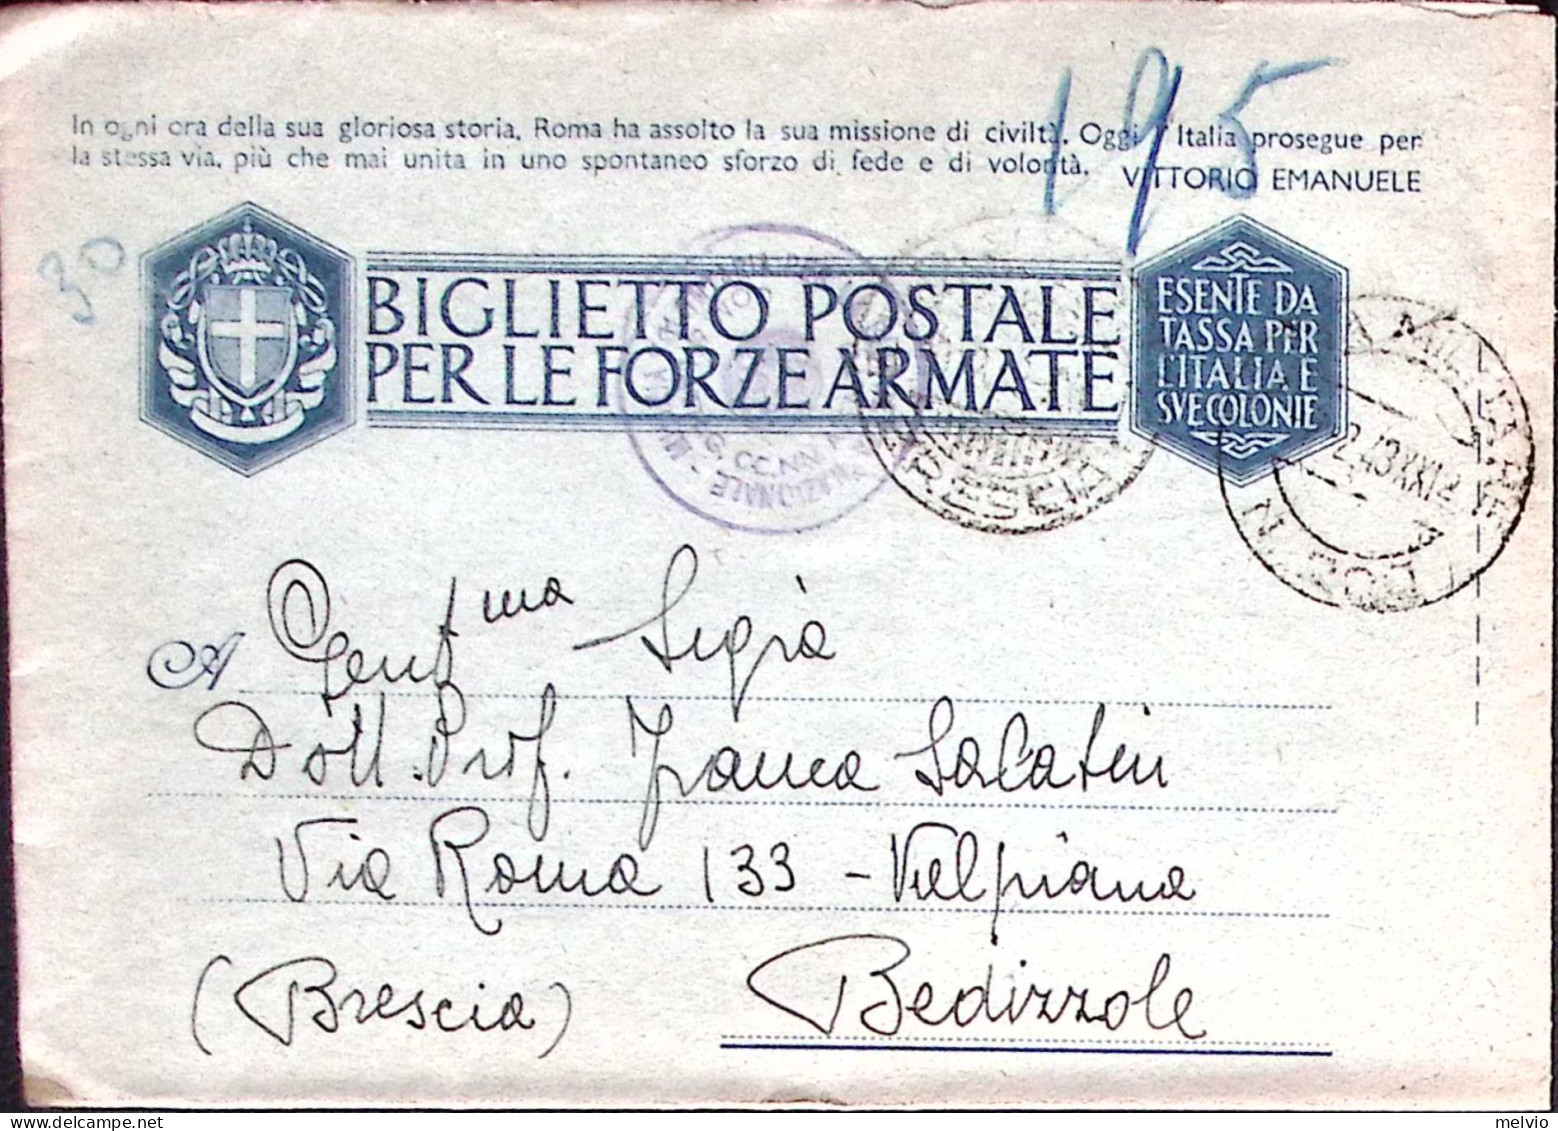 195
In ogni ora della sua gloriosa storia, Roma ha assolto la sua missione di civiltà. Oggi l'Italia prosegue per
la stessa via, più che mai unita in uno spontaneo sforzo di fede e di volontà.
VITTORIO EMANUELE
30
BIGLIETTO POSTALE
PER LE FORZE ARMATE
ESENTE DA
TASSA PER
L'ITALIA E
SVE COLONIE
BRESCIA
CC.NN.
NAZIONALE
2.43 XXI
N. 202
A Gent.ma Sig.ra
Dott. Prof. Franca Salatin
Via Roma 133 - Valpiana
(Brescia) Bedizzole
melvio